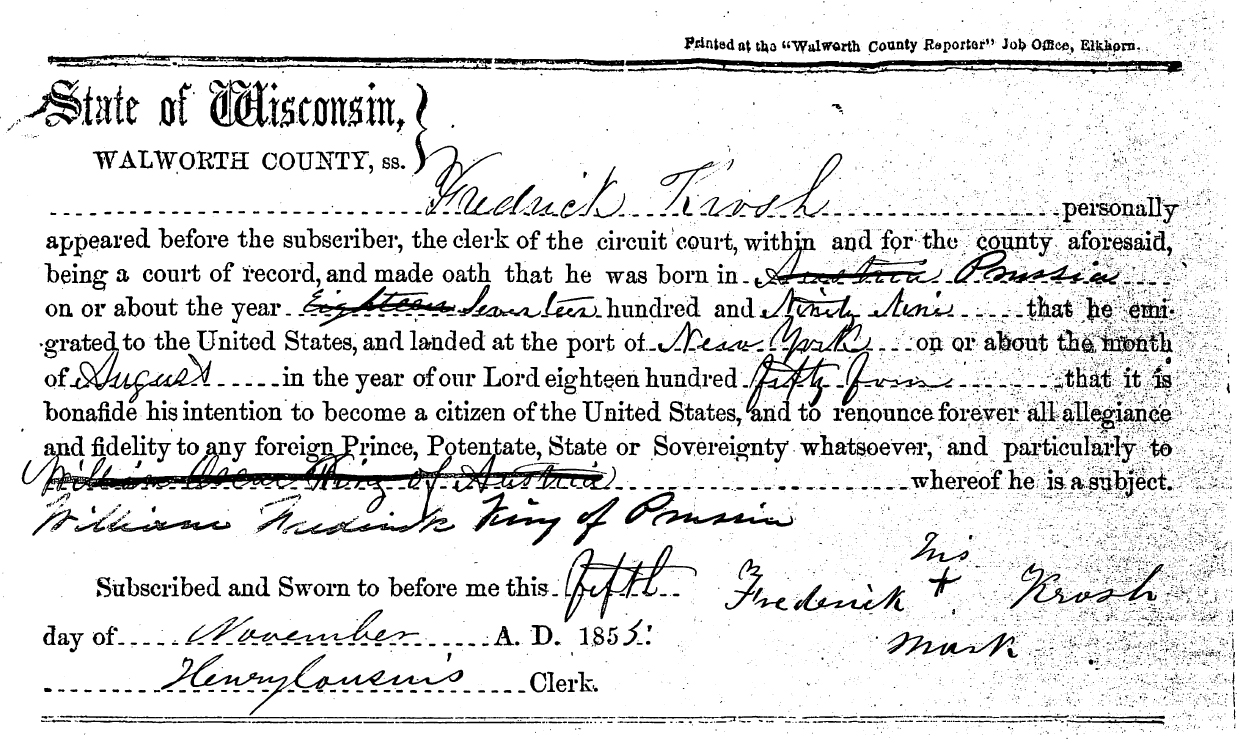 Printed at the "Walworth County Reporter" Job Office, Elkhorn.
State of Wisconsin,
WALWORTH COUNTY, ss.
Fredrick Krosh personally
appeared before the subscriber, the clerk of the circuit court, within and for the county aforesaid,
being a court of record, and made oath that he was born in Austria Prussia
on or about the year Eighteen Seventeen hundred and Ninety Nine that he emi-
grated to the United States, and landed at the port of New York on or about the month
of August in the year of our Lord eighteen hundred fifty four that it is
bonafide his intention to become a citizen of the United States, and to renounce forever all allegiance
and fidelity to any foreign Prince, Potentate, State or Sovereignty whatsoever, and particularly to
William Oscar King of Austria whereof he is a subject.
William Frederick King of Prussia
Subscribed and Sworn to before me this fifth
day of November A. D. 1855.
Henry Cousins Clerk.
his
Frederick + Krosh
mark